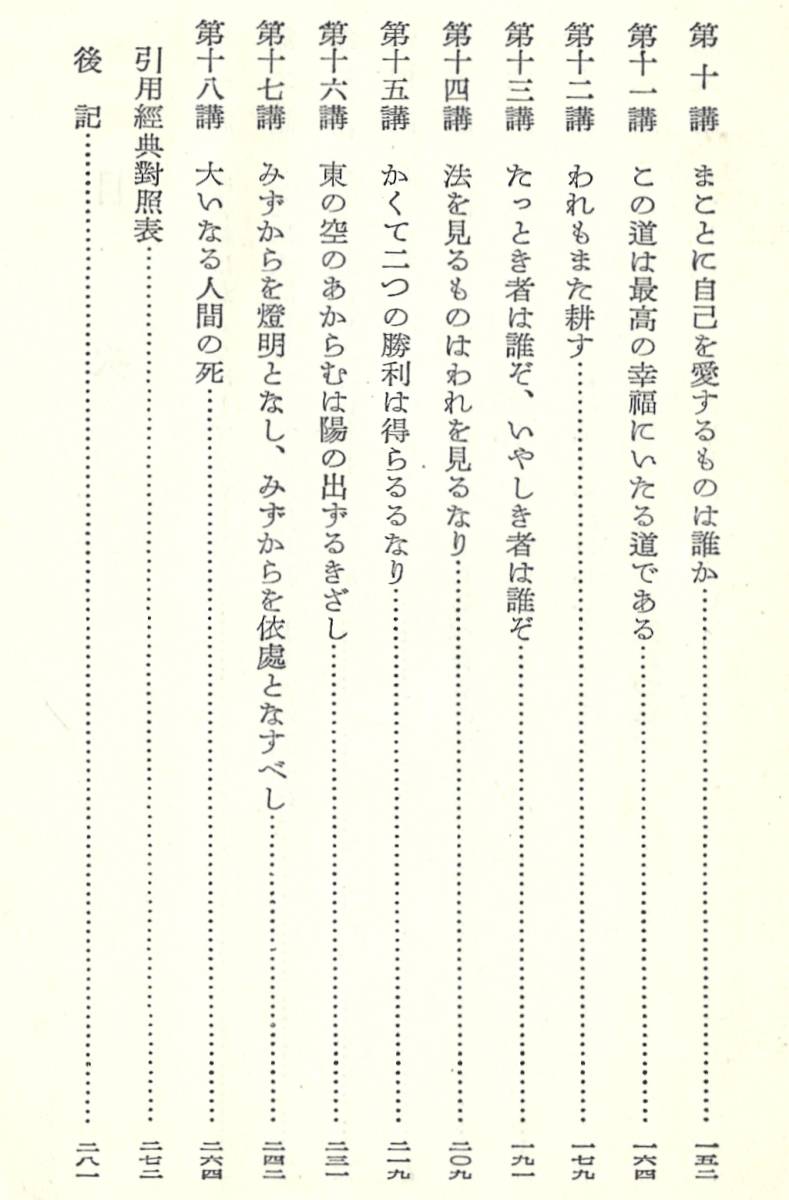 第十講　まことに自己を愛するものは誰か……一五二
第十一講　この道は最高の幸福にいたる道である……一六四
第十二講　われもまた耕す……一七九
第十三講　たっとき者は誰ぞ、いやしき者は誰ぞ……一九一
第十四講　法を見るものはわれを見るなり……二〇九
第十五講　かくて二つの勝利は得らるるなり……二一九
第十六講　東の空のあからむは陽の出ずるきざし……二三一
第十七講　みずからを燈明となし、みずからを依處となすべし……二四二
第十八講　大いなる人間の死……二六四
引用經典對照表……二七二
後記……二八一